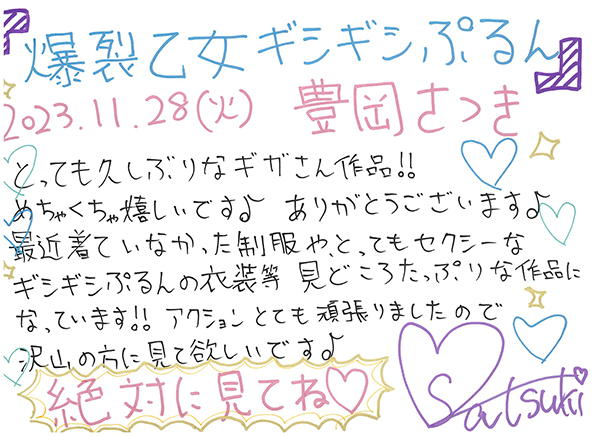 『爆裂乙女ギシギシぷるん』
2023.11.28(火) 豊岡さつき
とっても久しぶりなギガさん作品!!
めちゃくちゃ嬉しいです♪ ありがとうございます♪
最近着ていなかった制服や、とってもセクシーな
ギシギシぷるんの衣装等 見どころたっぷりな作品に
なっています!! アクションとても頑張りましたので
沢山の方に見て欲しいです♪
絶対に見てね♡
Satsuki